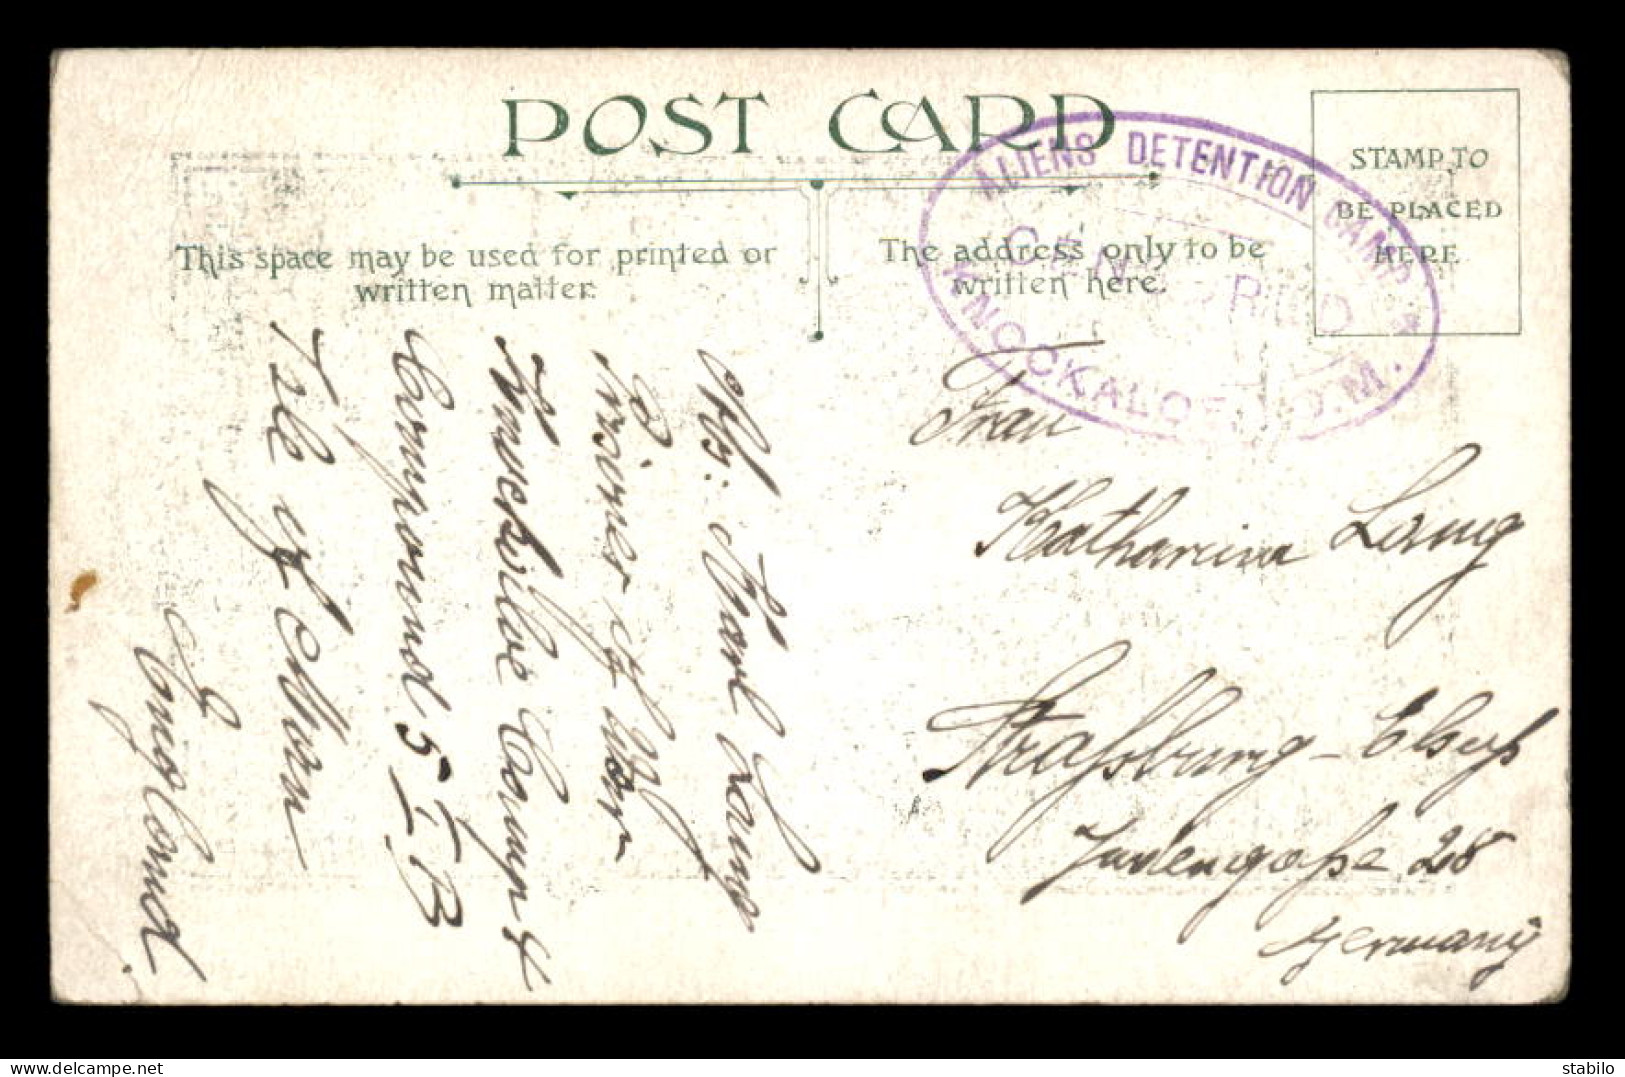 POST CARD
STAMP TO
BE PLACED
HERE
ALIENS DETENTION CAMP
CENSORED
KNOCKALOE I.O.M.
This space may be used for printed or
written matter.
The address only to be
written here.
Abs: Karl Lang
Prisoner of War
Knockaloe Camp 4
Compound 5 I B
Isle of Man
England
Frau
Katharina Lang
Straßburg - Elsaß
Judengaße 28
Germany
delcampe.net
lotusblanc